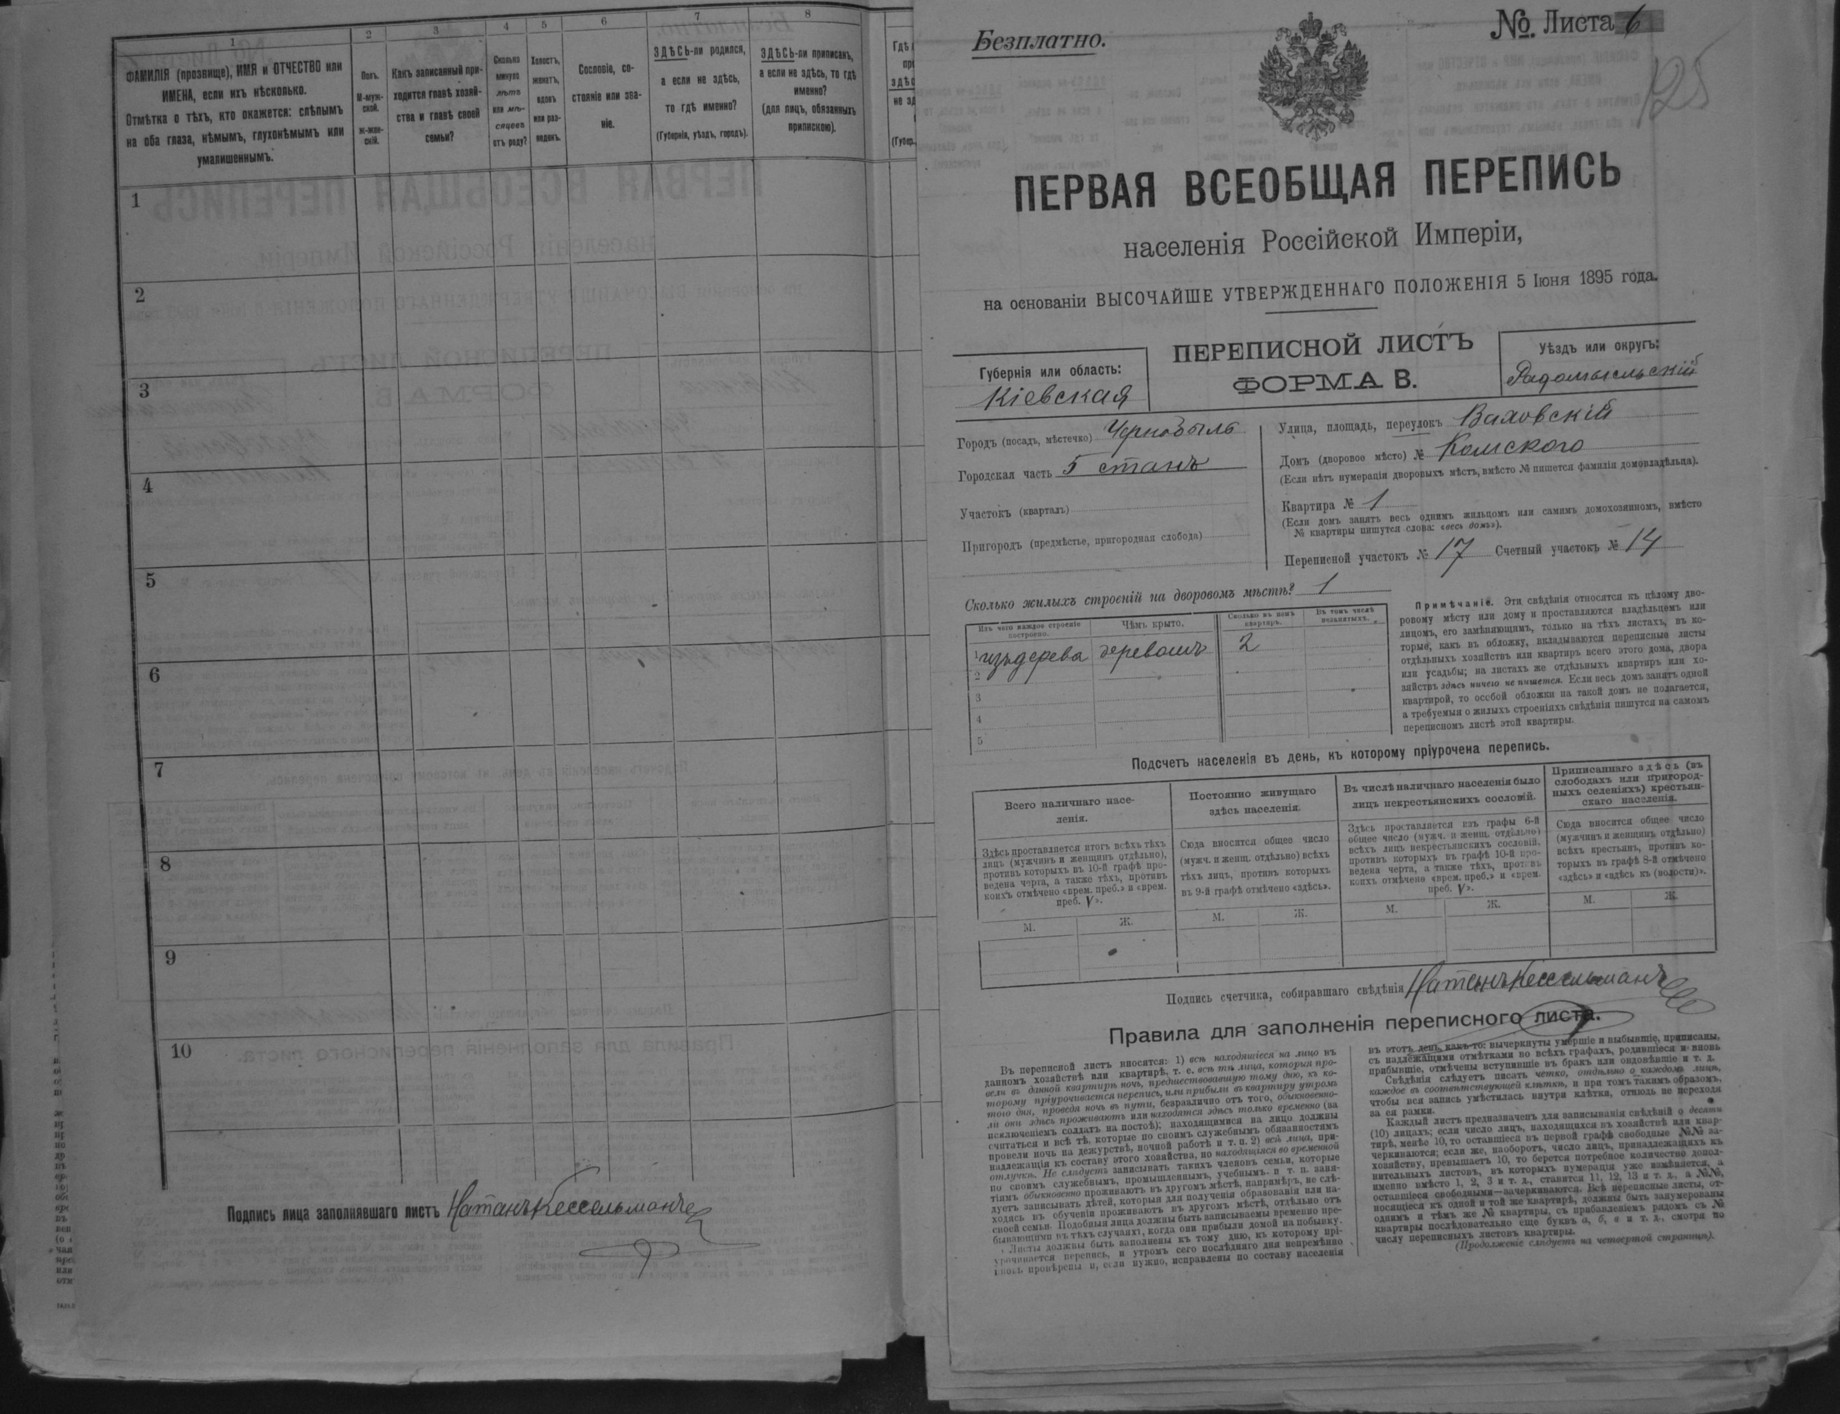 1
2
3
4
5
6
7
8
ФАМИЛІЯ (прозвище), ИМЯ и ОТЧЕСТВО или
ИМЕНА, если ихъ нѣсколько.
Отмѣтка о тѣхъ, кто окажется: слѣпымъ
на оба глаза, нѣмымъ, глухонѣмымъ или
умалишеннымъ.
Полъ.
М-муж-
ской.
Ж-жен-
скій.
Какъ записанный при-
ходится главѣ хозяй-
ства и главѣ своей
семьи?
Сколько
минуло
лѣтъ
или мѣ-
сяцевъ
отъ роду?
Холостъ,
женатъ,
вдовъ
или раз-
веденъ.
Сословіе, со-
стояніе или зва-
ніе.
ЗДѢСЬ-ли родился,
а если не здѣсь,
то гдѣ именно?
(Губернія, уѣздъ, городъ).
ЗДѢСЬ-ли приписанъ,
а если не здѣсь, то гдѣ
именно?
(для лицъ, обязанныхъ
припискою).
1
2
3
4
5
6
7
8
9
10
Подпись лица заполнявшаго листъ Натанъ Кессельманъ
Безплатно.
№ Листа 6
125
ПЕРВАЯ ВСЕОБЩАЯ ПЕРЕПИСЬ
населенія Россійской Имперіи,
на основаніи ВЫСОЧАЙШЕ УТВЕРЖДЕННАГО ПОЛОЖЕНІЯ 5 Іюня 1895 года.
ПЕРЕПИСНОЙ ЛИСТЪ
ФОРМА В.
Губернія или область:
Кіевская
Уѣздъ или округъ:
Радомысльскій
Городъ (посадъ, мѣстечко) Чернобыль
Городская часть 5 станъ
Участокъ (кварталъ)
Пригородъ (предмѣстье, пригородная слобода)
Улица, площадь, переулокъ Валовскій
Домъ (дворовое мѣсто) № Комского
(Если нѣтъ нумераціи дворовыхъ мѣстъ, вмѣсто № пишется фамилія домовладѣльца).
Квартира № 1
(Если домъ занятъ весь однимъ жильцомъ или самимъ домохозяиномъ, вмѣсто
№ квартиры пишутся слова: «весь домъ»).
Переписной участокъ № 17 Счетный участокъ № 14
Сколько жилыхъ строеній на дворовомъ мѣстѣ? 1
Изъ чего каждое строеніе
построено.
Чѣмъ крыто.
Сколько въ немъ
квартиръ.
Въ томъ числѣ
незанятыхъ.
1 изъ дерева деревомъ 2
2
3
4
5
Примѣчаніе. Эти свѣдѣнія относятся къ цѣлому дво-
ровому мѣсту или дому и проставляются владѣльцемъ или
лицомъ, его замѣняющимъ, только на тѣхъ листахъ, въ ко-
торые, какъ въ обложку, вкладываются переписные листы
отдѣльныхъ хозяйствъ или квартиръ всего этого дома, двора
или усадьбы; на листахъ же отдѣльныхъ квартиръ или хо-
зяйствъ здѣсь ничего не пишется. Если весь домъ занятъ одной
квартирой, то особой обложки на такой домъ не полагается,
а требуемыя о жилыхъ строеніяхъ свѣдѣнія пишутся на самомъ
переписномъ листѣ этой квартиры.
Подсчетъ населенія въ день, къ которому пріурочена перепись.
Всего наличнаго насе-
ленія.
Постоянно живущаго
здѣсь населенія.
Въ числѣ наличнаго населенія было
лицъ некрестьянскихъ сословій.
Приписаннаго здѣсь (въ
слободахъ или пригород-
ныхъ селеніяхъ) крестьян-
скаго населенія.
Здѣсь проставляется итогъ всѣхъ тѣхъ
лицъ (мужчинъ и женщинъ отдѣльно),
противъ которыхъ въ 10-й графѣ про-
ведена черта, а также тѣхъ, противъ
коихъ отмѣчено «врем. преб.» и «врем.
преб. V».
Сюда вносится общее число
(мужч. и женщ. отдѣльно) всѣхъ
тѣхъ лицъ, противъ которыхъ
въ 9-й графѣ отмѣчено «здѣсь».
Здѣсь проставляется изъ графы 6-й
общее число (мужч. и женщ. отдѣльно)
всѣхъ лицъ некрестьянскихъ сословій,
противъ которыхъ въ графѣ 10-й про-
ведена черта, а также тѣхъ, противъ
коихъ отмѣчено «врем. преб.» и «врем.
преб. V».
Сюда вносится общее число
(мужчинъ и женщинъ отдѣльно)
всѣхъ крестьянъ, противъ ко-
торыхъ въ графѣ 8-й отмѣчено
«здѣсь» и «здѣсь къ (волости)».
М. Ж. М. Ж. М. Ж. М. Ж.
Подпись счетчика, собиравшаго свѣдѣнія Натанъ Кессельманъ
Правила для заполненія переписного листа.
Въ переписной листъ вносятся: 1) всѣ находящіеся на лицо въ
данномъ хозяйствѣ или квартирѣ, т. е. всѣ тѣ лица, которыя про-
вели въ данной квартирѣ ночь, предшествовавшую тому дню, къ ко-
торому пріурочивается перепись, или прибыли въ квартиру утромъ
того дня, проведя ночь въ пути, безразлично отъ того, обыкновенно-
ли они здѣсь проживаютъ или находятся здѣсь только временно (за
исключеніемъ солдатъ на постоѣ); находящимися на лицо должны
считаться и всѣ тѣ, которые по своимъ служебнымъ обязанностямъ
провели ночь на дежурствѣ, ночной работѣ и т. п. 2) всѣ лица, при-
надлежащія къ составу этого хозяйства, но находящіяся во временной
отлучкѣ. Не слѣдуетъ записывать такихъ членовъ семьи, которые
по своимъ служебнымъ, промышленнымъ, учебнымъ и т. п. заня-
тіямъ обыкновенно проживаютъ въ другомъ мѣстѣ, напримѣръ, не слѣ-
дуетъ записывать дѣтей, которыя для полученія образованія или на-
ходясь въ обученіи проживаютъ въ другомъ мѣстѣ, отдѣльно отъ
своей семьи. Подобныя лица должны быть записываемы временно пре-
бывающими въ тѣхъ случаяхъ, когда они прибыли домой на побывку.
Листы должны быть заполнены къ тому дню, къ которому прі-
урочивается перепись, и утромъ сего послѣдняго дня непремѣнно
вновь провѣрены и, если нужно, исправлены по составу населенія
въ этотъ день, какъ-то: вычеркнуты умершіе и выбывшіе, приписаны,
съ надлежащими отмѣтками во всѣхъ графахъ, родившіеся и вновь
прибывшіе, отмѣчены вступившіе въ бракъ или овдовѣвшіе и т. д.
Свѣдѣнія слѣдуетъ писать четко, отдѣльно о каждомъ лицѣ,
каждое въ соотвѣтствующей клѣткѣ, и при томъ такимъ образомъ,
чтобы вся запись умѣстилась внутри клѣтки, отнюдь не переходя
за ея рамки.
Каждый листъ предназначенъ для записыванія свѣдѣній о десяти
(10) лицахъ; если число лицъ, находящихся въ хозяйствѣ или квар-
тирѣ, менѣе 10, то оставшіеся въ первой графѣ свободные №№ за-
черкиваются; если же, наоборотъ, число лицъ, принадлежащихъ къ
хозяйству, превышаетъ 10, то берется потребное количество допол-
нительныхъ листовъ, въ которыхъ нумерація уже измѣняется, а
именно вмѣсто 1, 2, 3 и т. д., ставятся 11, 12, 13 и т. д., а №№,
оставшіеся свободными—зачеркиваются. Всѣ переписные листы, от-
носящіеся къ одной и той же квартирѣ, должны быть занумерованы
однимъ и тѣмъ же № квартиры, съ прибавленіемъ рядомъ съ №
квартиры послѣдовательно еще буквъ а, б, в и т. д., смотря по
числу переписныхъ листовъ квартиры.
(Продолженіе слѣдуетъ на четвертой страницѣ).